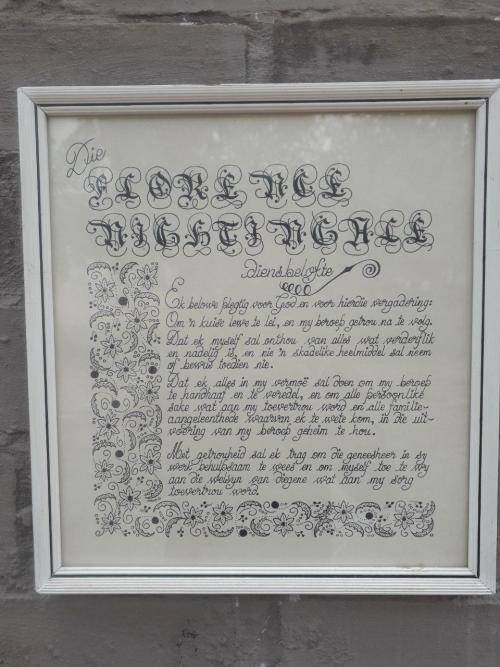 Die
FLORENCE
NIGHTINGALE
diensbelofte
Ek belowe plegtig voor God en voor hierdie vergadering:
Om 'n kuise lewe te lei, en my beroep getrou na te volg.
Dat ek myself sal onthou van alles wat verderflik
en nadelig is, en nie 'n skadelike heelmiddel sal neem
of bewus toedien nie.
Dat ek alles in my vermoë sal doen om my beroep
te handhaaf en te veredel, en om alle persoonlike
sake wat aan my toevertrou word en alle familie-
aangeleenthede waarvan ek te wete kom, in die uit-
voering van my beroep geheim te hou.
Met getrouheid sal ek trag om die geneesheer in sy
werk behulpsaam te wees en om myself toe te wy
aan die welsyn van diegene wat aan my sorg
toevertrou word.